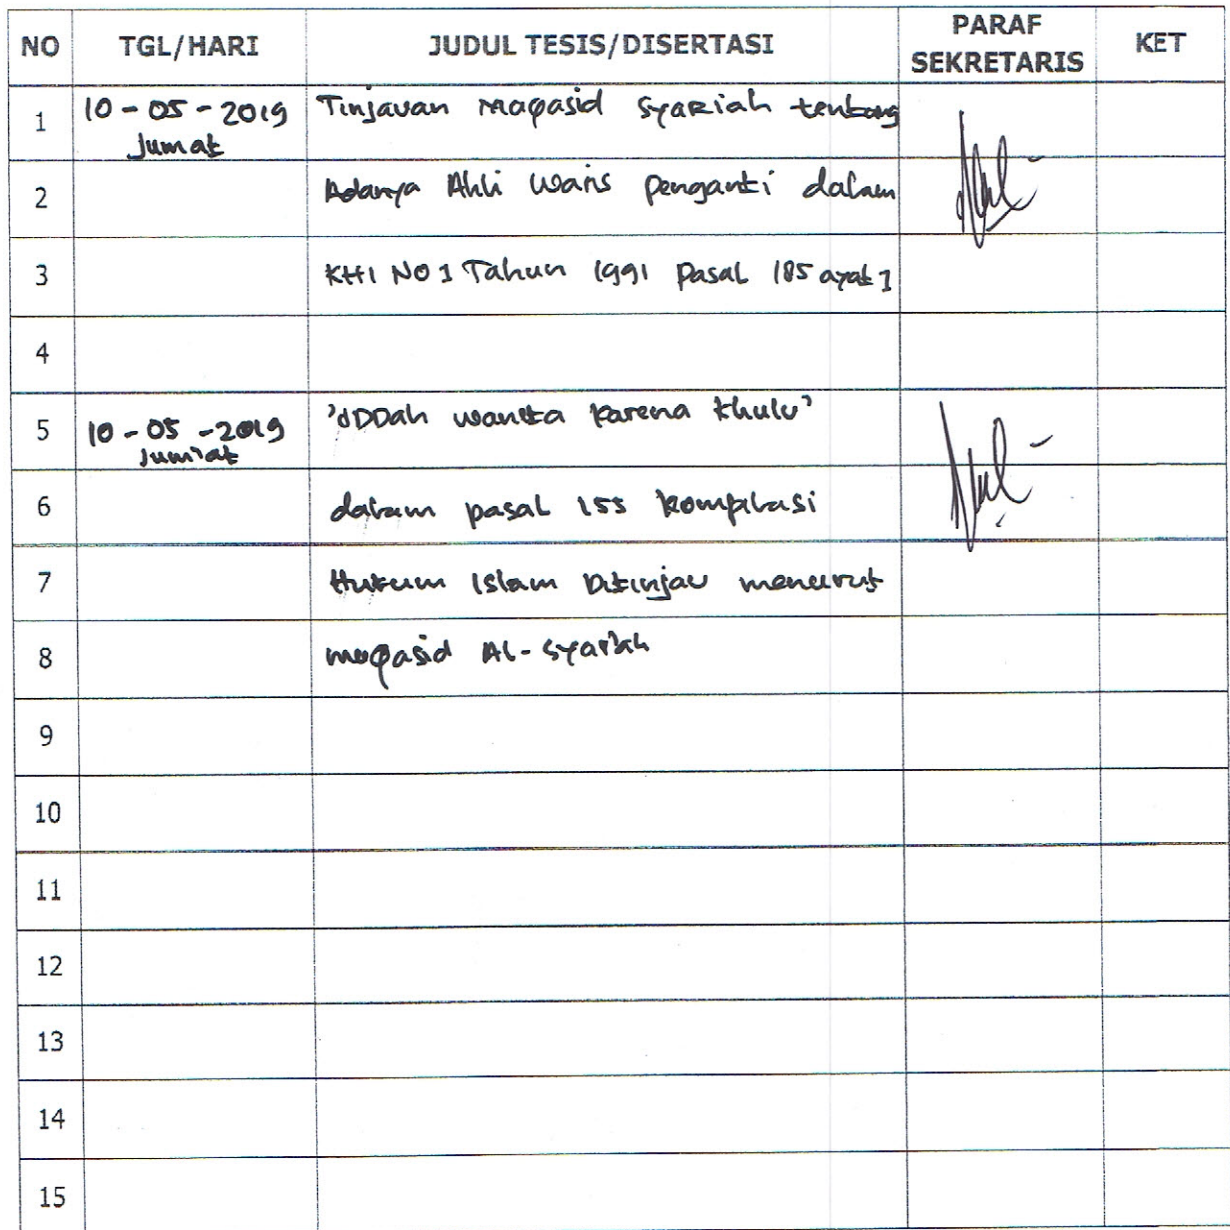 NO TGL/HARI JUDUL TESIS/DISERTASI PARAF SEKRETARIS KET
1 10-05-2019 Tinjauan maqasid syariah tentang
Jumat
2 Adanya Ahli Waris penganti dalam
3 KHI NO 1 Tahun 1991 Pasal 185 ayat 1
4
5 10-05-2019 'iDDah wanita karena khulu'
Jum'at
6 dalam pasal 155 kompilasi
7 Hukum Islam Ditinjau menurut
8 maqasid AL-syariah
9
10
11
12
13
14
15